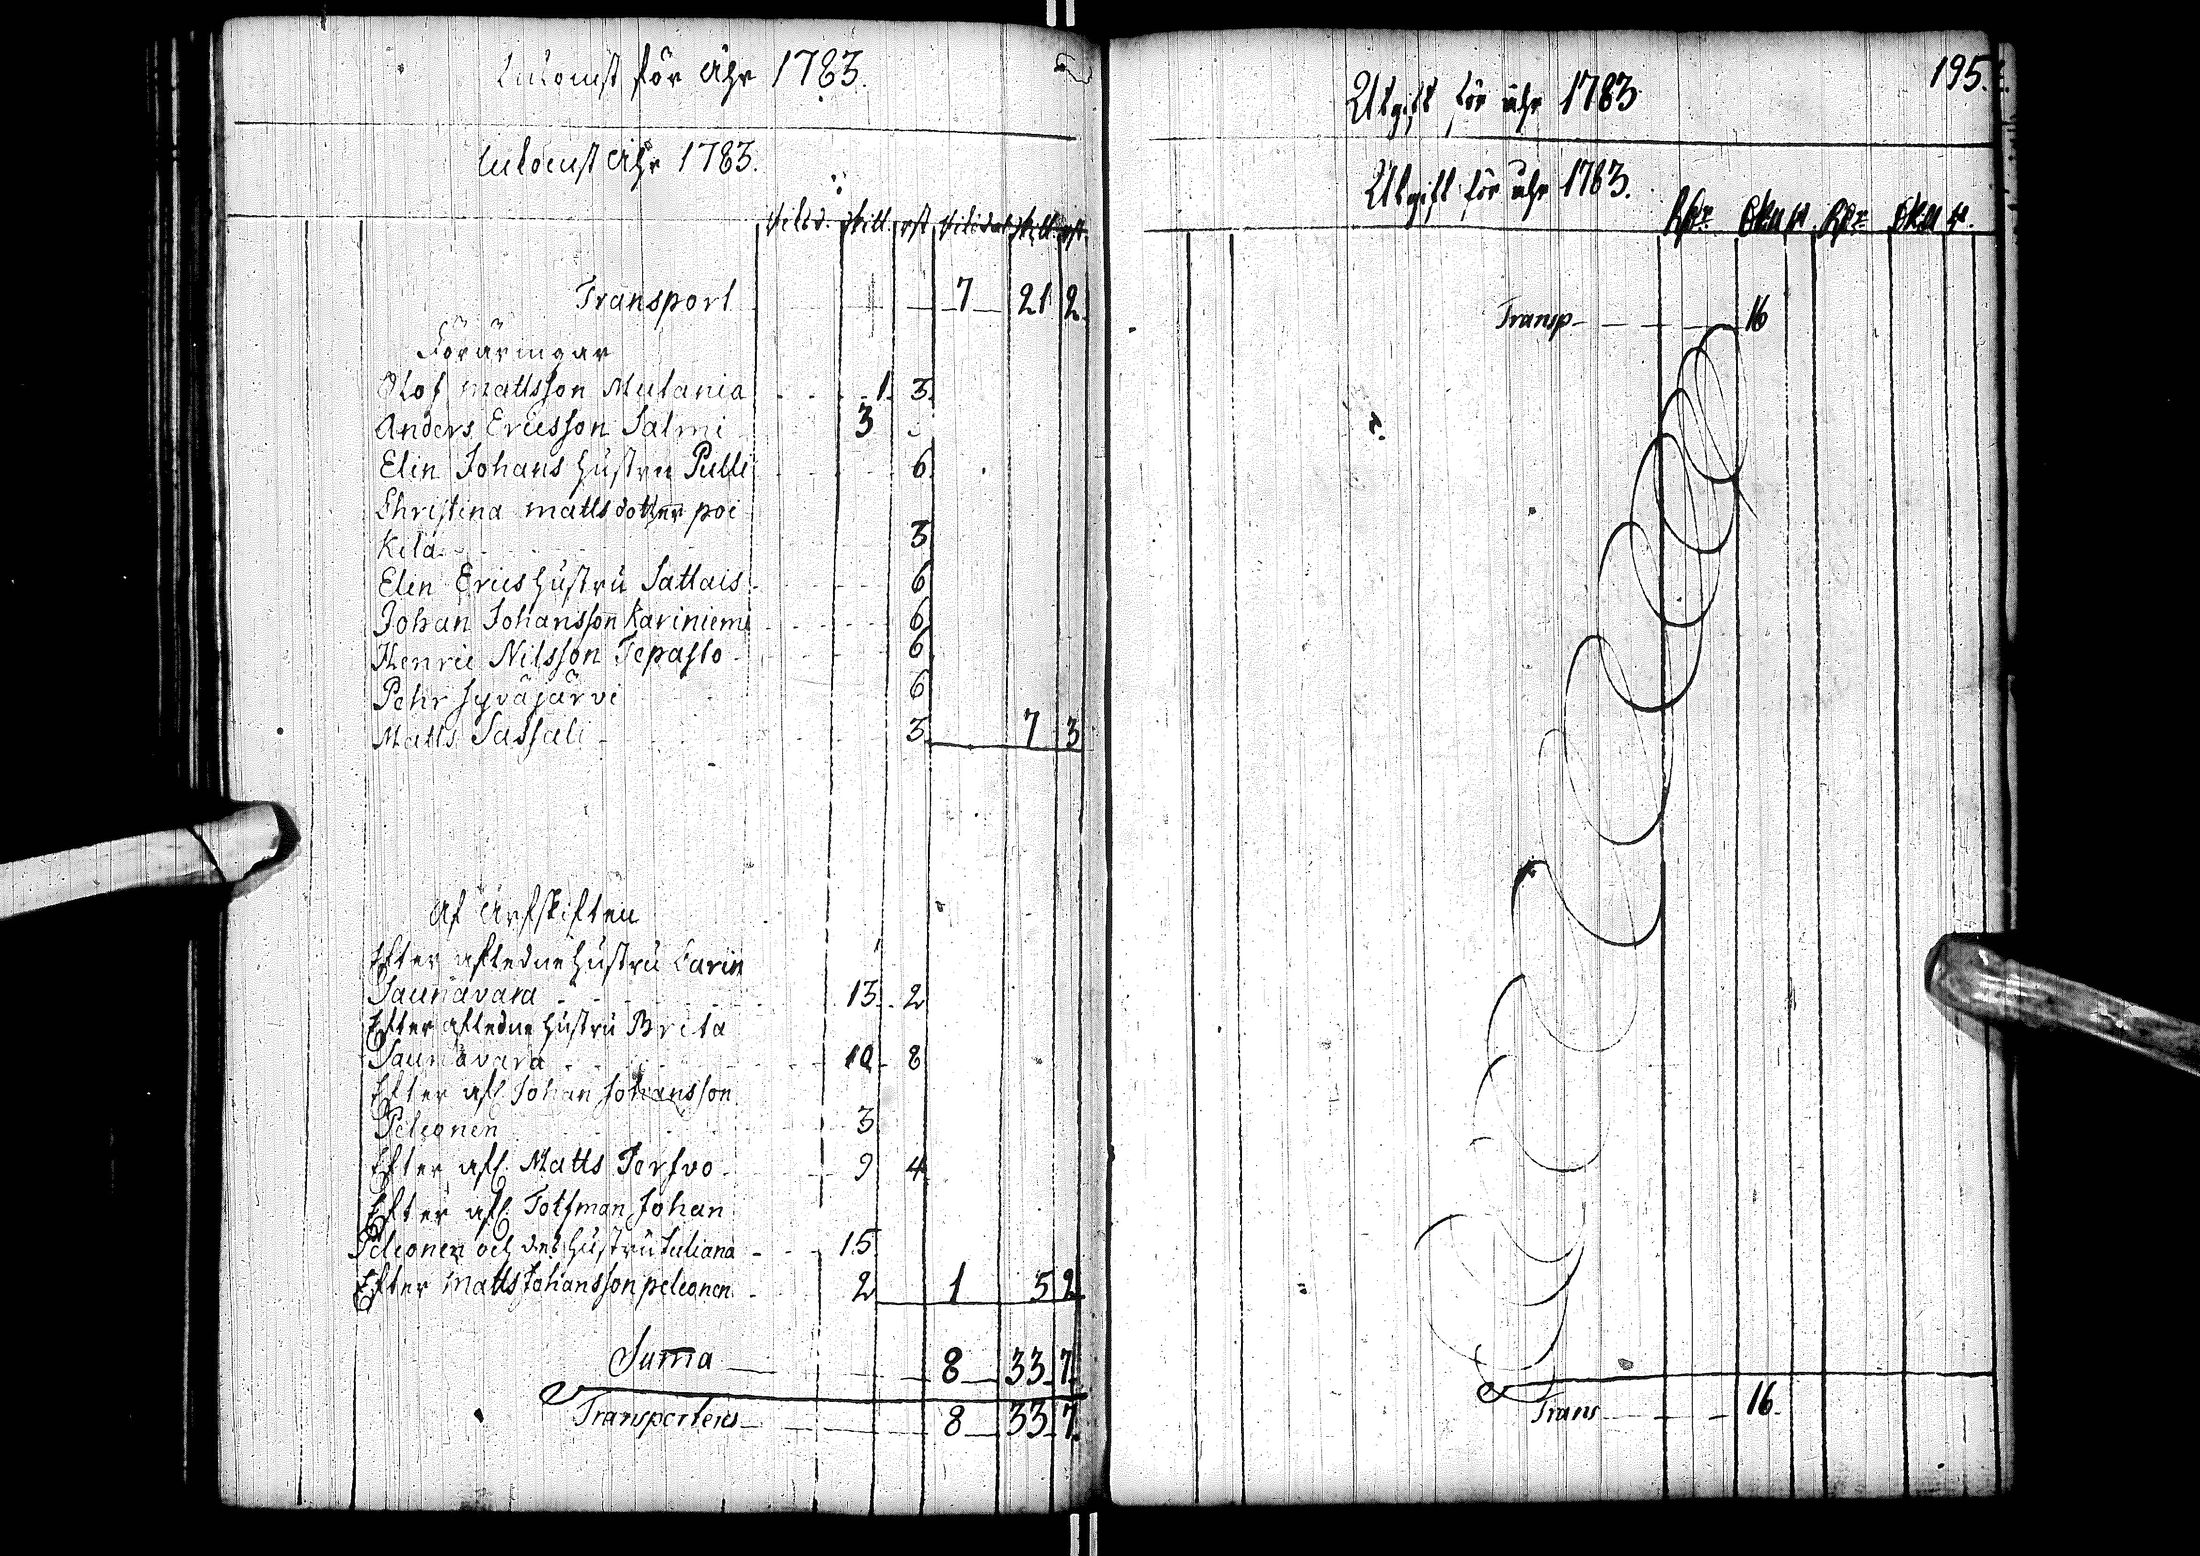 Inkomst för Åhr 1783.
Inkomst Åhr 1783.
Riksd. skill. rst. Riksdal skill. rst.
Transport 7 21 2.
Föräringar
Olof Mattsson Mulania 1. 3.
Anders Ericsson Salmi 3
Elin Johans hustru Pulli 6.
Christina Mattsdotter poi
kela 3
Elin Erics hustru Sattais 6
Johan Johansson Kariniemi 6
Henric Nilsson Tepasto 6
Pehr Syväjärvi 6
Matts Sassali 3. 7 3
Af Arfskiften
Efter afledne hustru Carin
Saunavara 13. 2
Efter afledne hustru Brita
Saunavara 10 8
Efter afl. Johan Johansson
Peleonen 3
Efter afl. Matts Tersvo 9 4
Efter afl. Tolfman Johan
Peleonen och des hustru Juliana 15
Efter Matts Johansson peleonen 2 1 5 2
Suma 8 33 7
Transporteras 8 33 7.
195.
Utgift för åhr 1783
Utgift för åhr 1783.
Rdr Sk. r. Rdr Sk. r.
Transp 16
Trans 16.